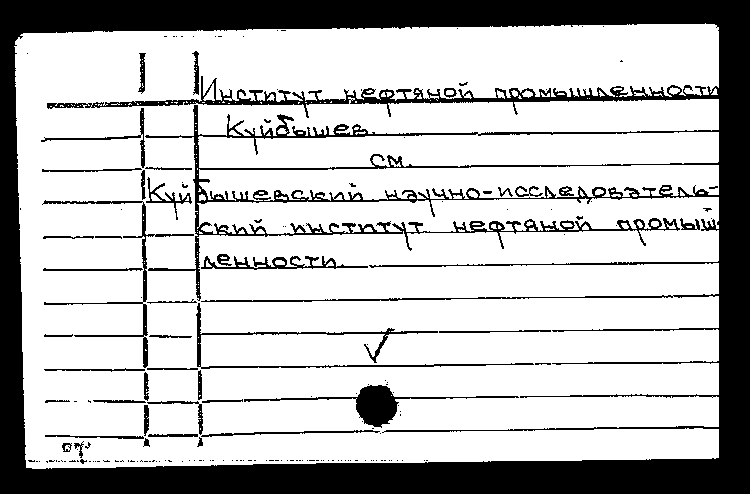 Институт нефтяной промышленности
Куйбышев.
см.
Куйбышевский научно-исследователь-
ский институт нефтяной промыш-
ленности.